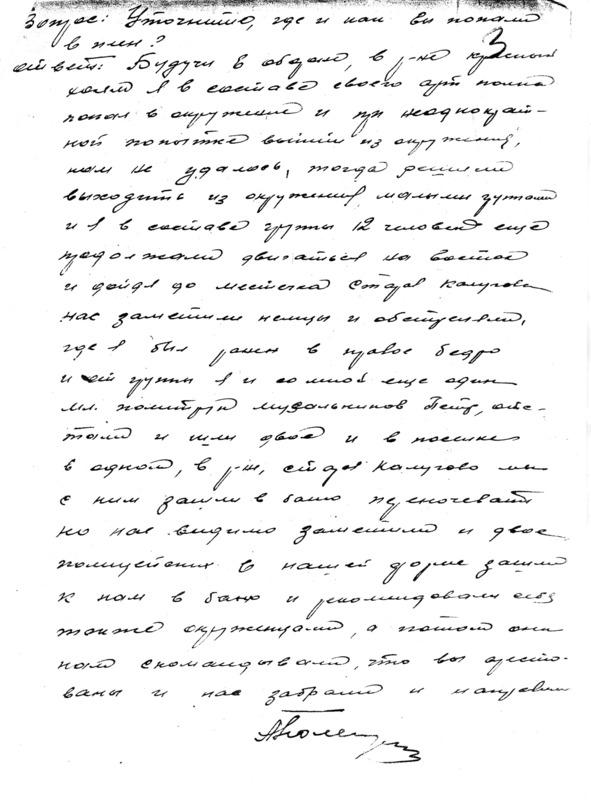 Вопрос: Уточните, где и как вы попали
в плен?
3
Ответ: Будучи в обороне, в р-не Красный
холм я в составе своего арт полка
попал в окружение и при неоднократ-
ной попытке выйти из окружения,
нам не удалось, тогда решили
выходить из окружения малыми группами
и я в составе группы 12 человек еще
продолжали двигаться на восток
и дойдя до местечка Стар
нас заметили немцы и обстреляли,
где я был ранен в правое бедро
и от группы я и со мной еще один
мл. политрук Петр, отс-
тали и шли двое и в поселке
в одном, в р-не, стар мы
с ним зашли в баню переночевать
но нас видимо заметили и двое
полицейских в нашей форме зашли
к нам в баню и рекомендовали себя
также окруженцами, а потом они
нам скомандывали, что вы аресто-
ваны и нас забрали и направили